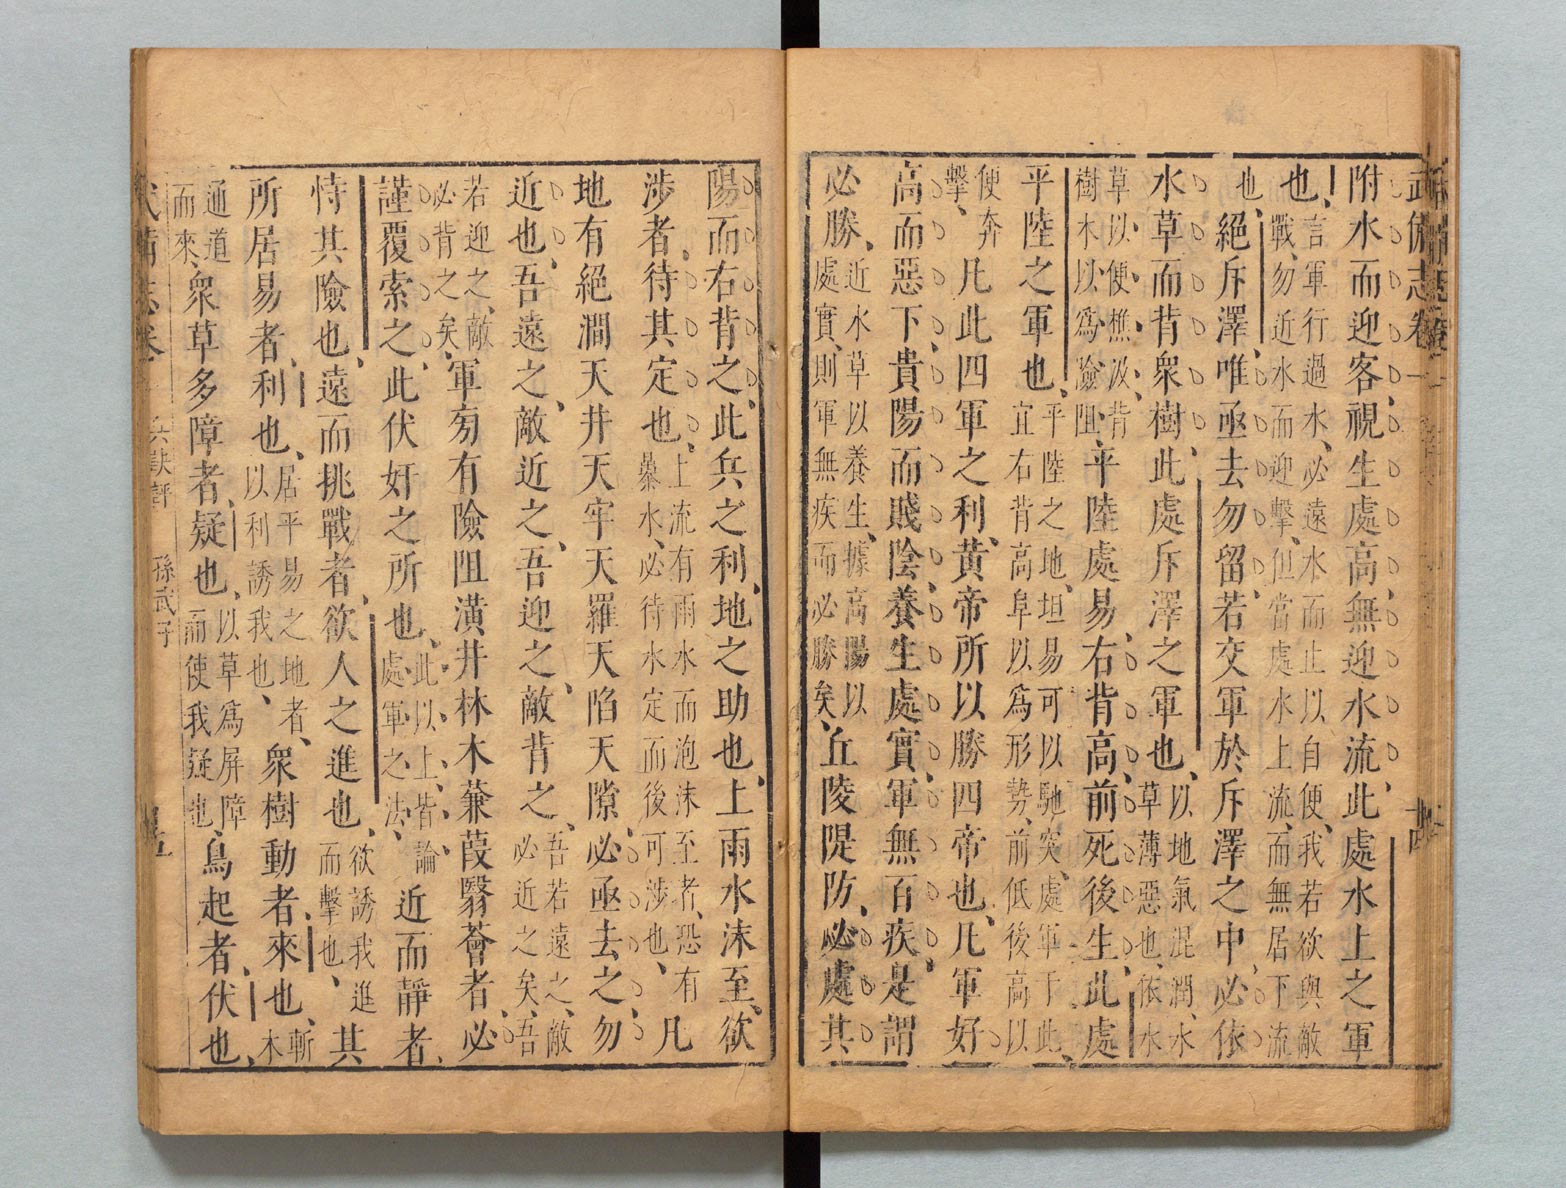 武備志卷一 十四
附水而迎客視生處高無迎水流此處水上之軍
也、言軍行過水、必遠水而止以自便、我若欲與敵
戰、勿近水而迎擊、但當處水上流、而無居下流
也、絕斥澤唯亟去勿留若交軍於斥澤之中必依
水草而背衆樹此處斥澤之軍也、以地氣混潤、水
草薄惡也、依水
草以便樵汲、背
樹木以爲險阻、平陸處易右背高、前死後生、此處
平陸之軍也、平陸之地、坦易可以馳突、處軍于此、
宜右背高阜以爲形勢、前低後高以
便奔
擊、凡此四軍之利、黃帝所以勝四帝也、凡軍好
高而惡下、貴陽而賤陰、養生處實軍無百疾、是謂
必勝、近水草以養生、據高陽以
處實、則軍無疾而必勝矣、丘陵隄防、必處其
陽而右背之、此兵之利、地之助也、上雨水沫至、欲
涉者、待其定也、上流有雨水而泡沫至者、恐有
暴水、必待水定而後可涉也、凡
地有絕澗天井天牢天羅天陷天隙、必亟去之勿
近也、吾遠之、敵近之、吾迎之、敵背之、吾若遠之、敵
必近之矣、吾
若迎之、敵
必背之矣、軍旁有險阻潢井林木蒹葭翳薈者、必
謹覆索之、此伏奸之所也、此以上、皆論
處軍之法、近而靜者、
恃其險也、遠而挑戰者、欲人之進也、欲誘我進
而擊也、其
所居易者、利也、居平易之地者、
以利誘我也、衆樹動者、來也、斬
木
通道
而來、衆草多障者、疑也、以草爲屏障
而使我疑也、鳥起者、伏也、
武備志卷一 兵訣評 孫武子 十五